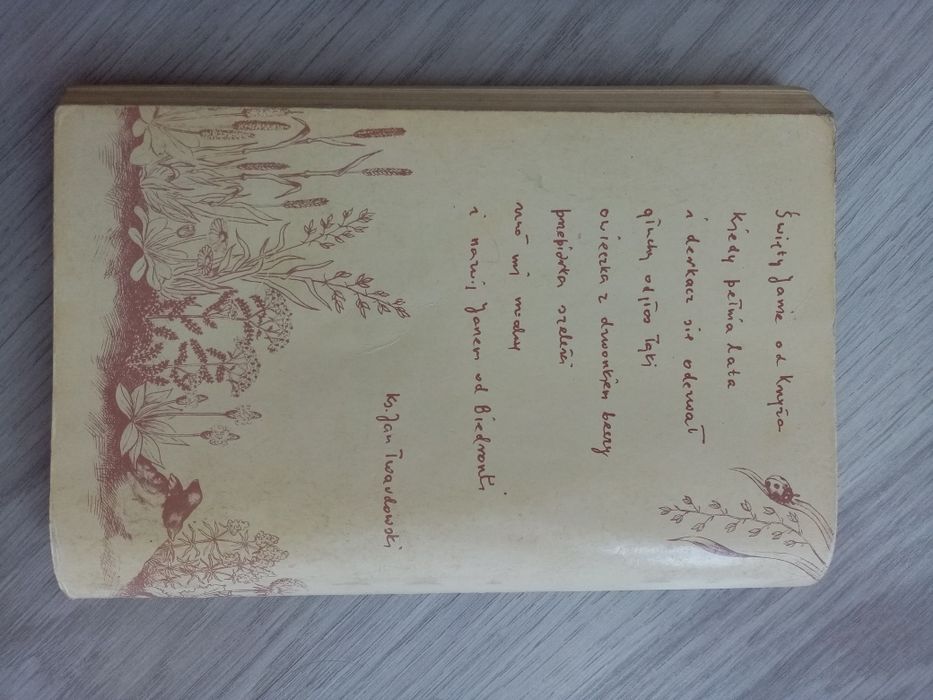 Święty Janie od Krzyża
kiedy pełnia lata
i derkacz się odezwał
głuchy odgłos łąki
owieczka z dzwonkiem beczy
przepiórka szeleści
mnie mi modny
i nazwij Janem od Biedronki
ks. Jan Twardowski